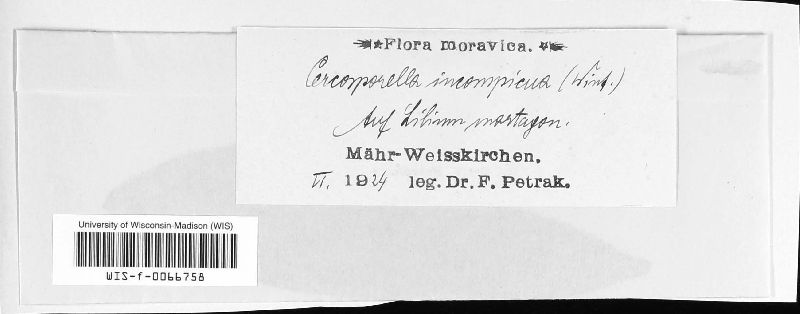 Flora moravica.
Cercosporella inconspicua (Wint.)
Auf Lilium martagon.
Mähr-Weisskirchen.
VI. 1924 leg. Dr. F. Petrak.
University of Wisconsin-Madison (WIS)
WIS-f-0066758